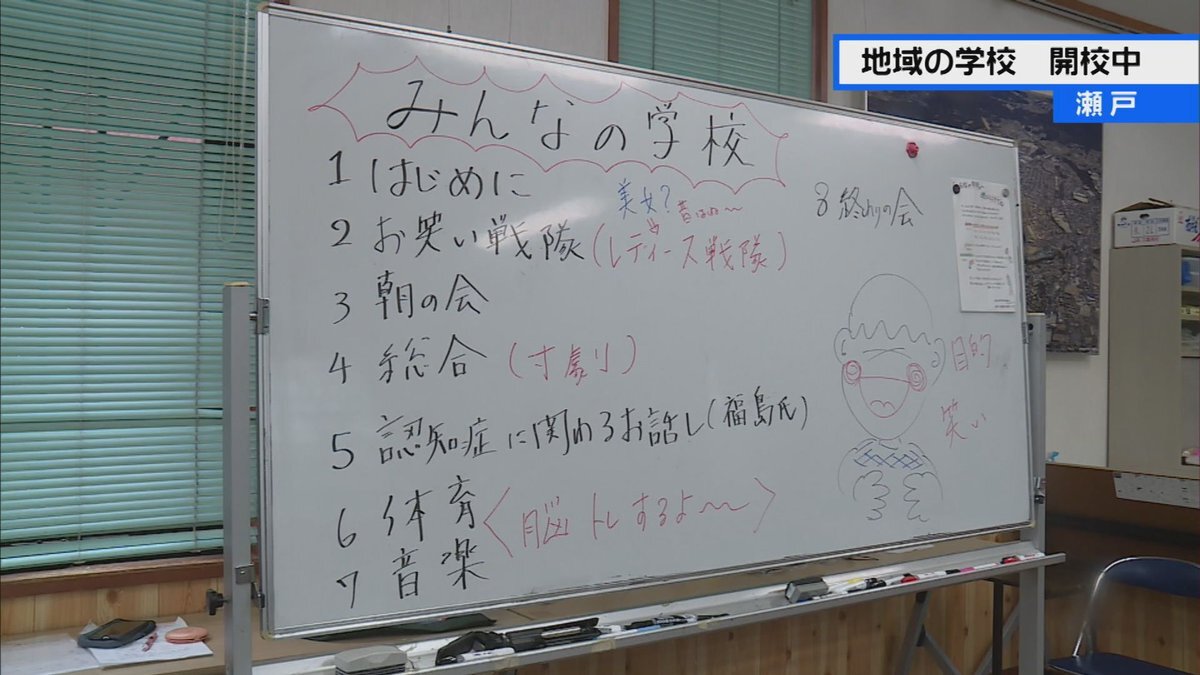 地域の学校 開校中
瀬戸
みんなの学校
1 はじめに
美女? 昔はね〜
2 お笑い戦隊(レディース戦隊)
3 朝の会
4 総合 (寸劇り)
5 認知症に関わるお話し(福島氏)
6 体育
7 音楽
〈脳トレするよ〜〉
8 終わりの会
目的
笑い